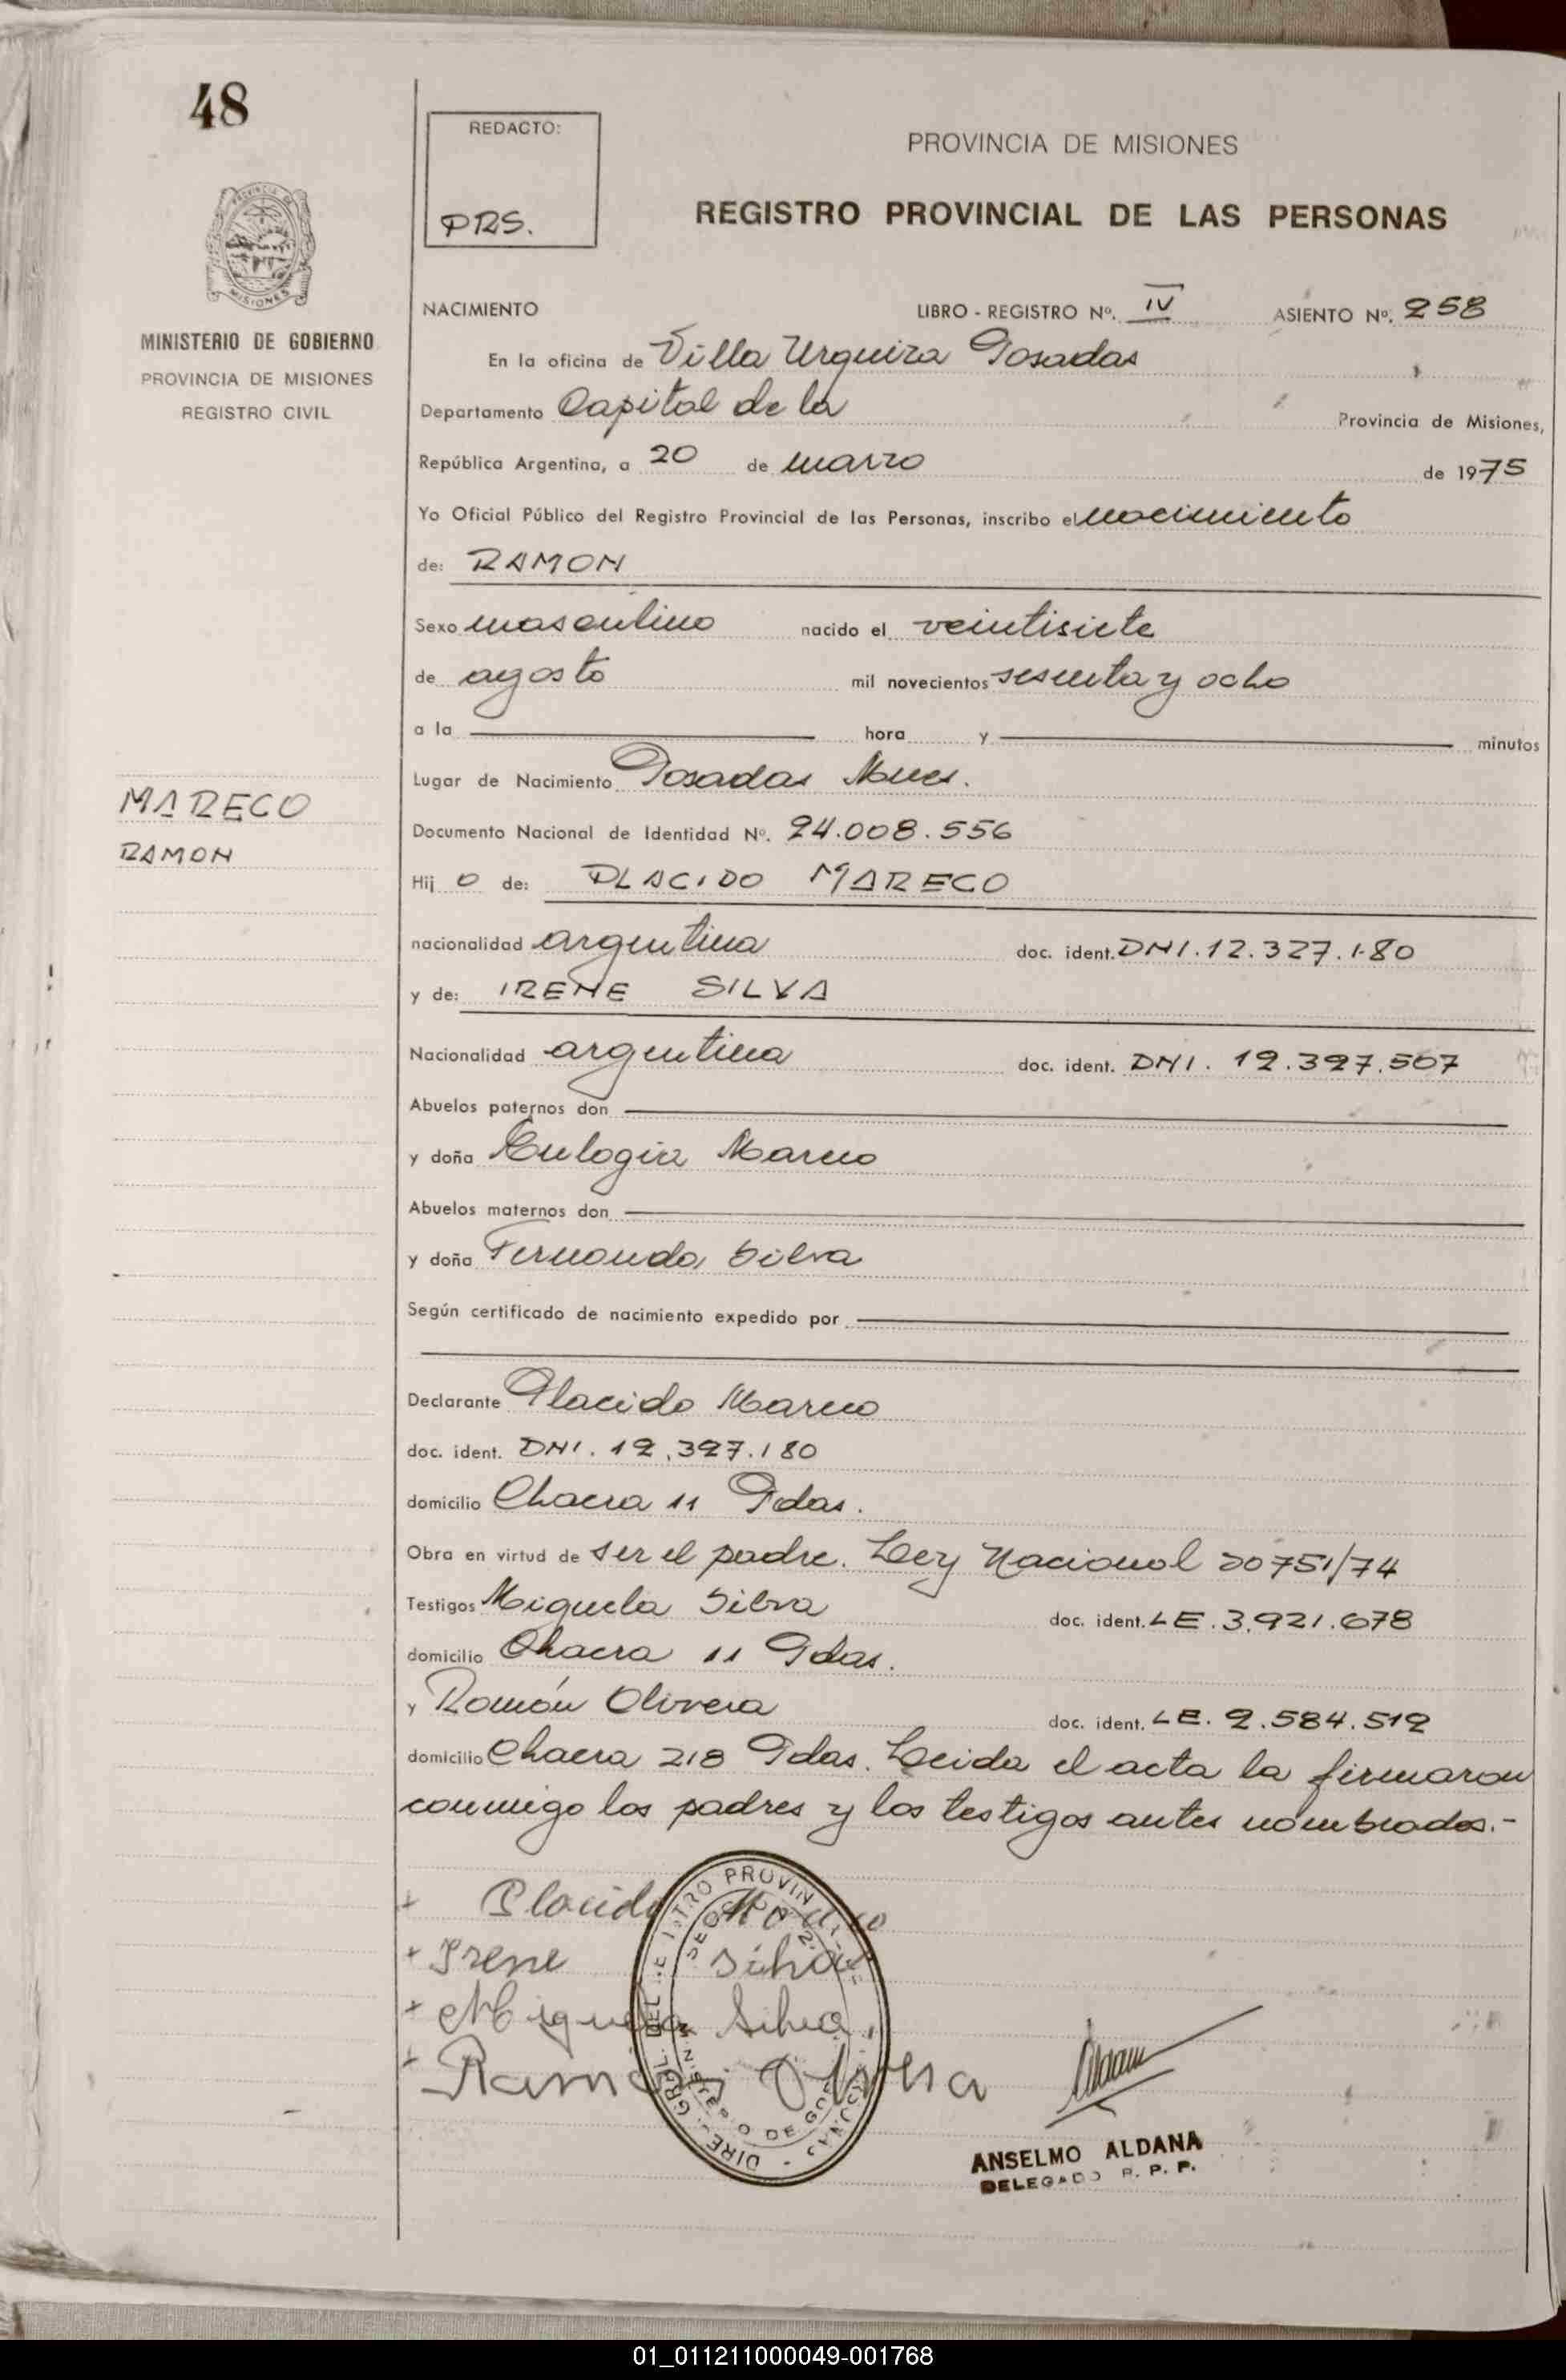 48
REDACTO:
PRS.
PROVINCIA DE MISIONES
REGISTRO PROVINCIAL DE LAS PERSONAS
PROVINCIA DE
MISIONES
MINISTERIO DE GOBIERNO
PROVINCIA DE MISIONES
REGISTRO CIVIL
NACIMIENTO LIBRO - REGISTRO Nº. IV ASIENTO Nº. 258
En la oficina de Villa Urquiza Posadas
Departamento Capital de la Provincia de Misiones,
República Argentina, a 20 de marzo de 1975
Yo Oficial Público del Registro Provincial de las Personas, inscribo el nacimiento
de: RAMON
Sexo masculino nacido el veintisiete
de agosto mil novecientos sesenta y ocho
a la hora y minutos
Lugar de Nacimiento Posadas Mnes.
MARECO
RAMON
Documento Nacional de Identidad Nº. 24.008.556
Hij o de: PLACIDO MARECO
nacionalidad argentina doc. ident. DNI. 12.327.180
y de: IRENE SILVA
Nacionalidad argentina doc. ident. DNI. 12.327.507
Abuelos paternos don
y doña Eulogia Mareco
Abuelos maternos don
y doña Fernanda Silva
Según certificado de nacimiento expedido por
Declarante Placido Mareco
doc. ident. DNI. 12.327.180
domicilio Chacra 11 Pdas.
Obra en virtud de ser el padre. Ley Nacional 20751/74
Testigos Miguela Silva doc. ident. LE. 3.921.678
domicilio Chacra 11 Pdas.
y Ramón Olivera doc. ident. LE. 2.584.512
domicilio Chacra 218 Pdas. Leida el acta la firmaron
conmigo los padres y los testigos antes nombrados.-
+ Placido Mareco
+ Irene Silva
+ Miguela Silva
+ Ramon Olivera
Aldana
ANSELMO ALDANA
DELEGADO R. P. P.
01_011211000049-001768